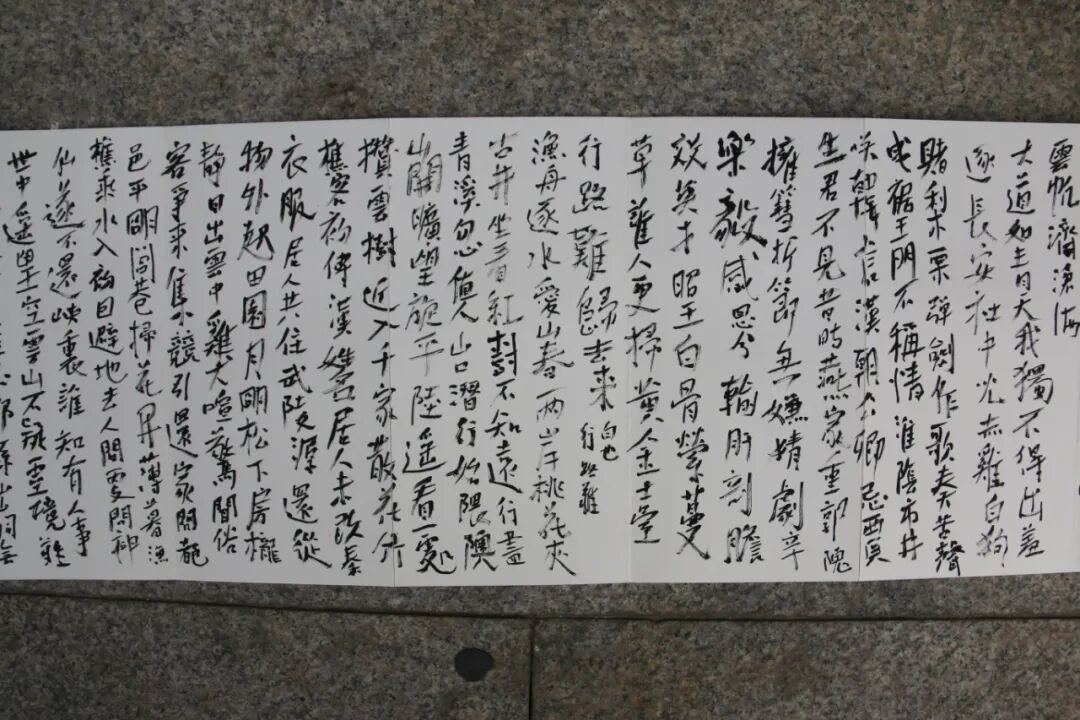 雲帆濟滄海
大道如青天我獨不得出羞
逐長安社中兒赤雞白狗
賭梨栗彈劍作歌奏苦聲
曳裾王門不稱情淮陰市井
笑韓信漢朝公卿忌賈
生君不見昔時燕家重郭隗
擁篲折節無嫌猜劇辛
樂毅感恩分輸肝剖膽
效英才昭王白骨縈蔓
草誰人更掃黃金臺
行路難歸去來 白也
行路難
漁舟逐水愛山春兩岸桃花夾
古津坐看紅樹不知遠行盡
青溪忽值人山口潛行始隈隩
山開曠望旋平陸遙看一處
攢雲樹近入千家散花竹
樵客初傳漢姓名居人未改秦
衣服居人共住武陵源還從
物外起田園月明松下房櫳
靜日出雲中雞犬喧驚聞俗
客爭來集競引還家問都
邑平明閭巷掃花開薄暮漁
樵乘水入初因避地去人間更問神
仙遂不還峽裏誰知有人事
世中遙望空雲山不疑靈境難